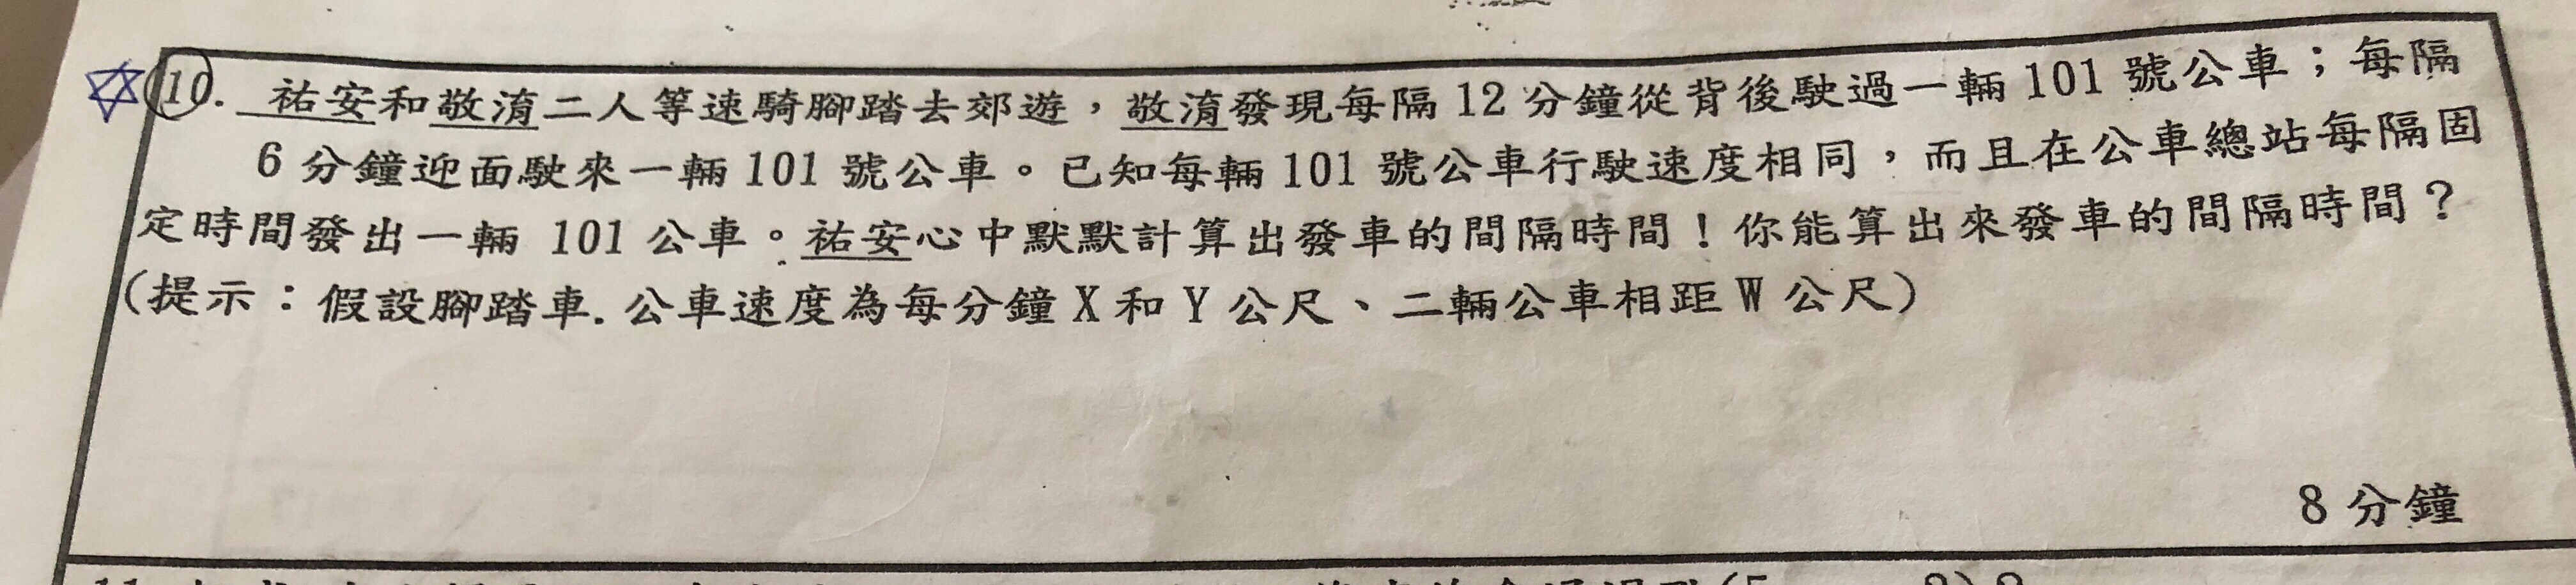 10. 祐安和敬淯二人等速騎腳踏去郊遊，敬淯發現每隔12分鐘從背後駛過一輛101號公車；每隔
6分鐘迎面駛來一輛101號公車。已知每輛101號公車行駛速度相同，而且在公車總站每隔固
定時間發出一輛 101公車。祐安心中默默計算出發車的間隔時間！你能算出來發車的間隔時間？
(提示：假設腳踏車.公車速度為每分鐘X和Y公尺、二輛公車相距W公尺)
8分鐘